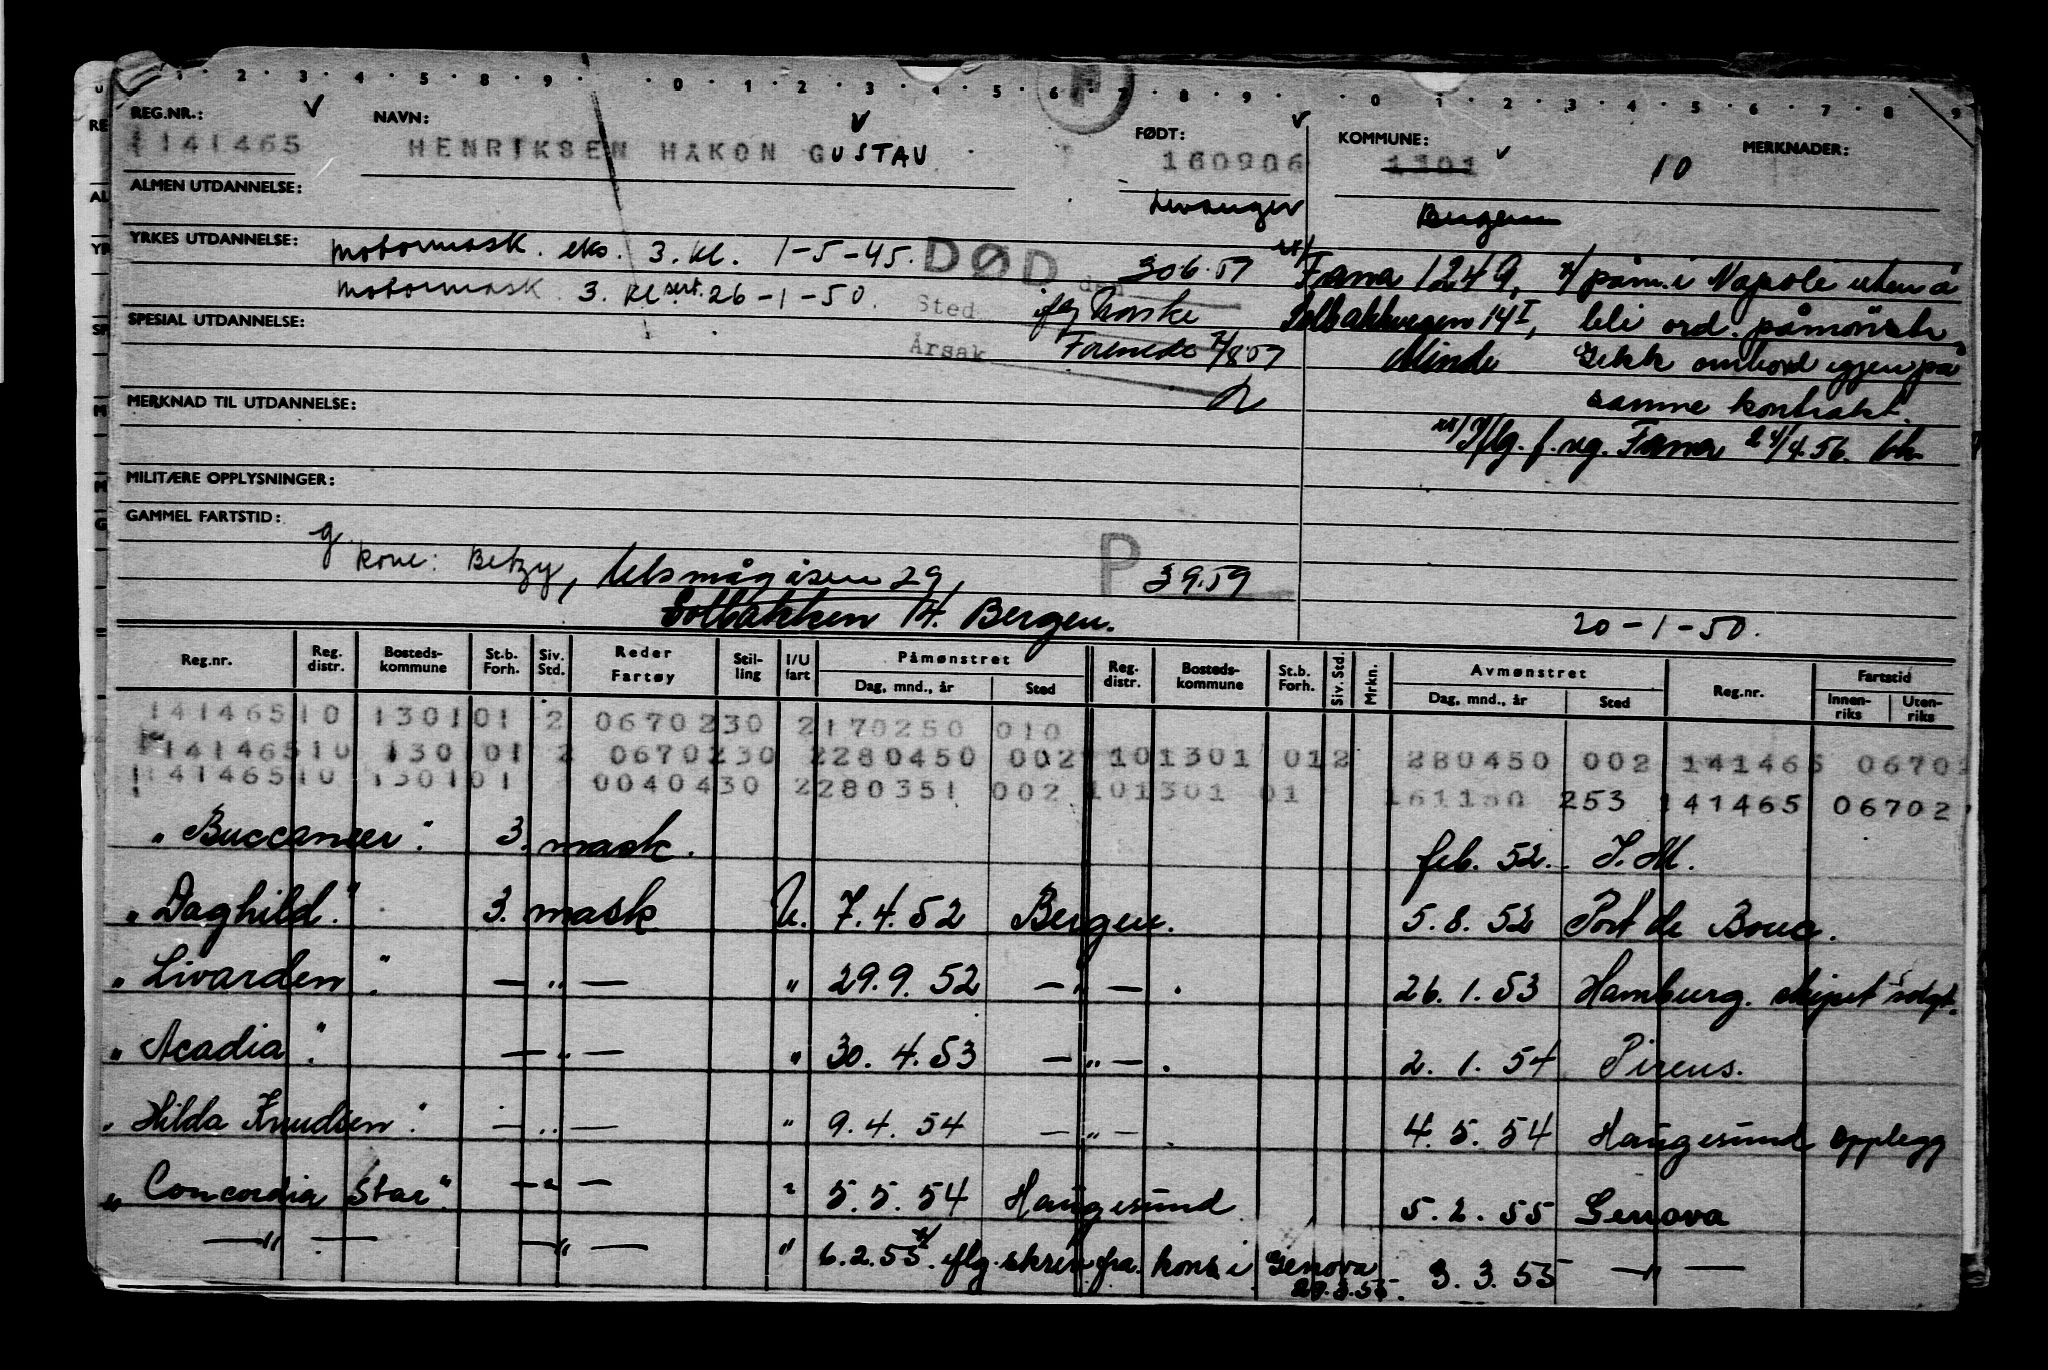 1 · 2 · 3 · 4 · 5 · 8 · 9 · · 0 · 1 · 2 · 3 · 4 · 5 · 6 · 7 · 8 · 9 · · 0 · 1 · 2 · 3 · 4 · 5 · 6 · 7 · 8 · 9
REG.NR.: NAVN: FØDT: KOMMUNE: MERKNADER:
141465 HENRIKSEN HAKON GUSTAV 160906 1301 10
ALMEN UTDANNELSE: Levanger Bergen
YRKES UTDANNELSE: motormask. eks. 3. kl. 1-5-45. DØD den 306.59 Fana 1249, x/ påm. i Napoli uten å
motormask. 3. kl sert. 26-1-50. Sted iflg Norske Solbakkveien 14 I, bli ord. påmönstr.
SPESIAL UTDANNELSE: Årsak Forende 7/8.59 Minde Gikk ombord igjen på
samme kontrakt.
MERKNAD TIL UTDANNELSE:
xx/ Iflg. f. reg. Fana 24/4.56.
MILITÆRE OPPLYSNINGER:
GAMMEL FARTSTID:
g.
kone: Betzy, 29, P 3959
Solbakken 14. Bergen. 20-1-50.
Reg.nr. Reg. distr. Bosteds-kommune St.b. Forh. Siv. Std. Reder Fartøy Stil-ling I/U fart Påmønstret Dag, mnd., år Sted Reg. distr. Bosteds-kommune St.b. Forh. Siv. Std. Mrkn. Avmønstret Dag, mnd., år Sted Reg.nr. Fartstid Innen-riks Uten-riks
141465 10 1301 01 2 0670230 2170250 010
141465 10 1301 01 2 0670230 2280450 002 101301 012 280450 002 141465 0670
141465 10 1301 01 0040430 2280351 002 101301 01 161150 253 141465 06702
"Buccaneer". 3. mask. feb. 52. I.M.
"Daghild." 3. mask. U. 7.4.52 Bergen. 5.8.52 Port de Bouc.
"Livarden". — " — " 29.9.52 — " — . 26.1.53 Hamburg. skipet solgt.
"Acadia". — " — " 30.4.53 — " — . 2.1.54 Pireus.
"Hilda Knudsen". — " — " 9.4.54 — " — . 4.5.54 Haugesund opplegg
"Concordia Star". — " — " 5.5.54 Haugesund 5.2.55 Genova
— " — — " — " 6.2.55 x/ iflg. skriv fra kons i Genova 3.3.55 — " —
29.3.55.